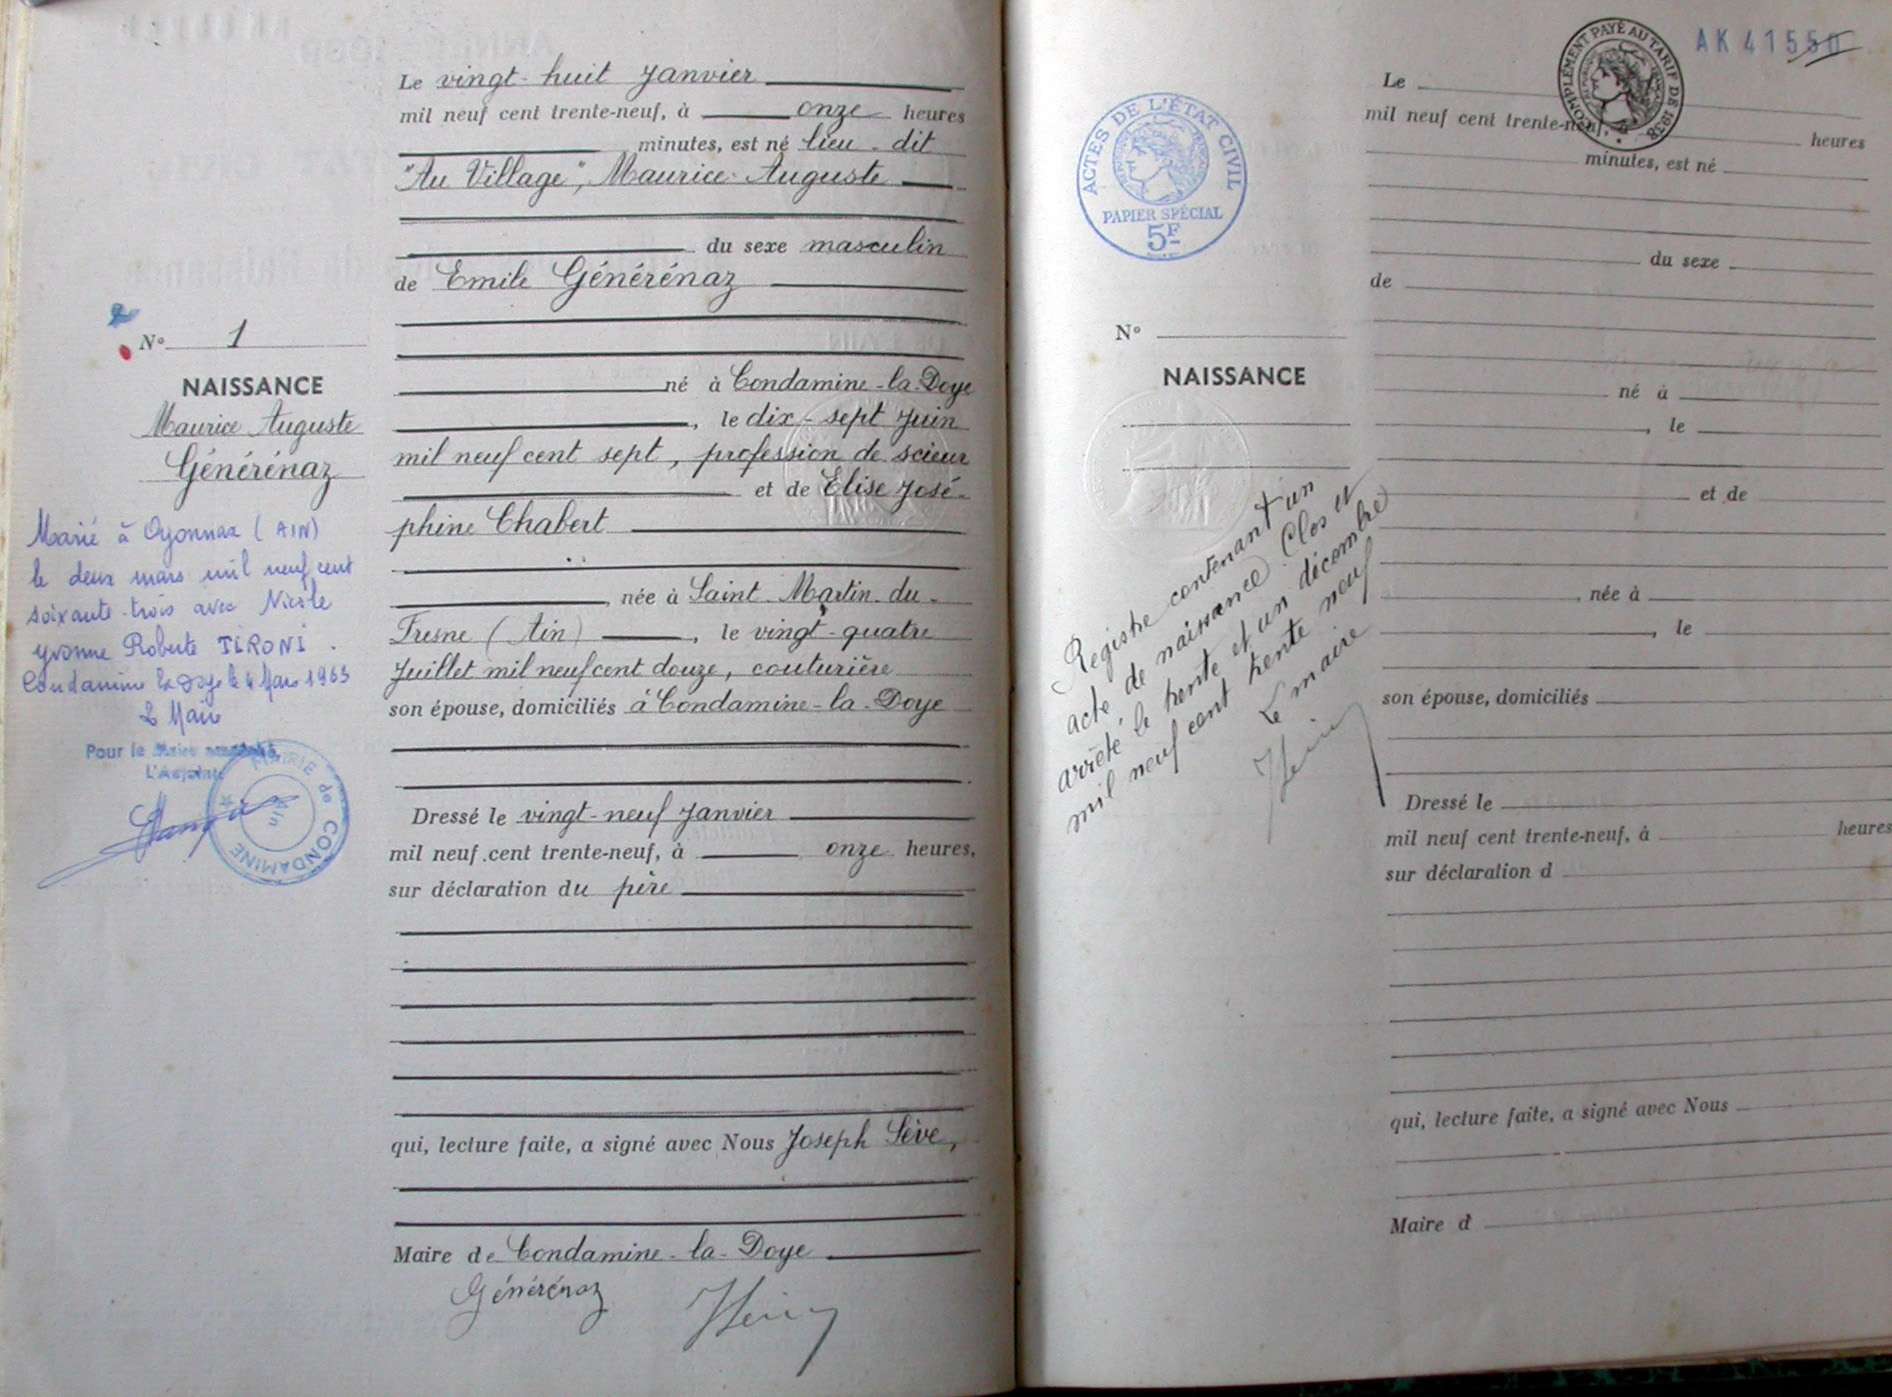 Le vingt-huit Janvier
mil neuf cent trente-neuf, à onze heures
minutes, est né lieu-dit
"Au Village", Maurice Auguste
du sexe masculin
de Emile Générénaz
né à Condamine-la-Doye
, le dix-sept Juin
mil neuf cent sept, profession de scieur
et de Elise José-
phine Chabert
, née à Saint-Martin-du-
Fresne (Ain) , le vingt-quatre
Juillet mil neuf cent douze, couturière
son épouse, domiciliés à Condamine-la-Doye
Dressé le vingt-neuf Janvier
mil neuf cent trente-neuf, à onze heures,
sur déclaration du père
qui, lecture faite, a signé avec Nous Joseph Sève,
Maire de Condamine-la-Doye
Générénaz
N° 1
NAISSANCE
Maurice Auguste
Générénaz
Marié à Oyonnax (AIN)
le deux mars mil neuf cent
soixante-trois avec Nicole
Yvonne Roberte TIRONI.
Condamine la Doye le 4 Mars 1963
Le Maire
Pour le Maire
L'Adjoint
MAIRIE de CONDAMINE
Ain
AK 41550
COMPLÉMENT PAYÉ AU TARIF DE 1938
ACTES DE L'ÉTAT CIVIL
PAPIER SPÉCIAL
5F
N°
NAISSANCE
Registre contenant un
acte de naissance. Clos et
arrêté le trente et un décembre
mil neuf cent trente neuf
Le maire
Le
mil neuf cent trente-neuf, à heures
minutes, est né
du sexe
de
né à
, le
et de
, née à
, le
son épouse, domiciliés
Dressé le
mil neuf cent trente-neuf, à heures
sur déclaration d
qui, lecture faite, a signé avec Nous
Maire d